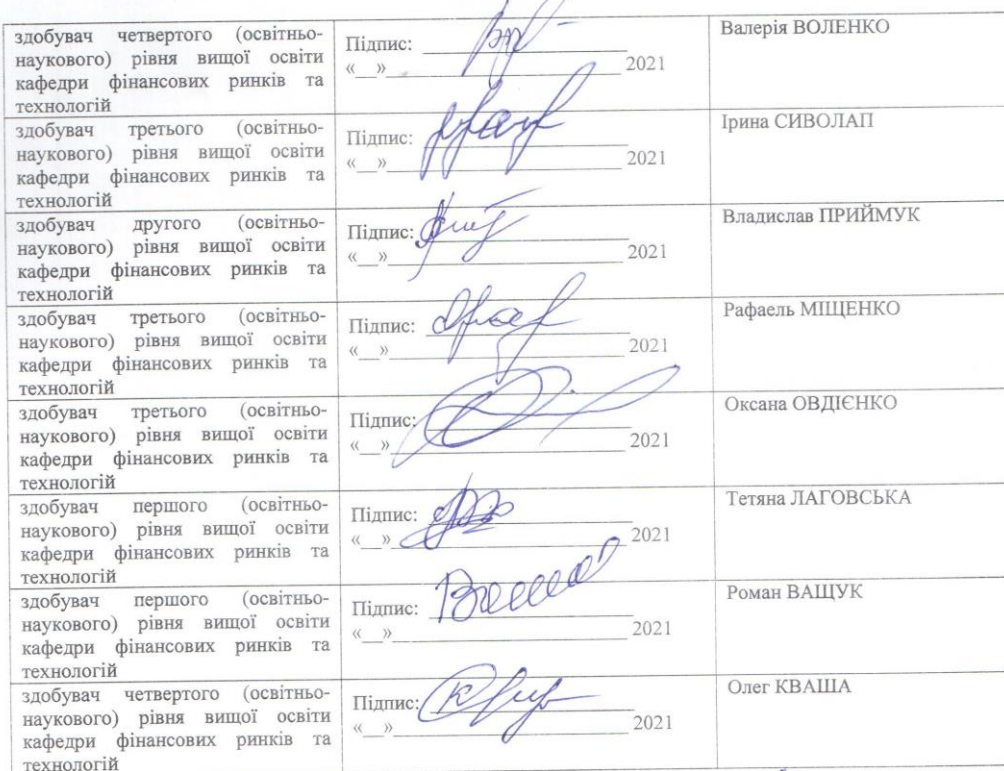 здобувач четвертого (освітньо-
наукового) рівня вищої освіти
кафедри фінансових ринків та
технологій
Підпис: ____________________
«__»______________________ 2021
Валерія ВОЛЕНКО
здобувач третього (освітньо-
наукового) рівня вищої освіти
кафедри фінансових ринків та
технологій
Підпис: ____________________
«__»______________________ 2021
Ірина СИВОЛАП
здобувач другого (освітньо-
наукового) рівня вищої освіти
кафедри фінансових ринків та
технологій
Підпис: ____________________
«__»______________________ 2021
Владислав ПРИЙМУК
здобувач третього (освітньо-
наукового) рівня вищої освіти
кафедри фінансових ринків та
технологій
Підпис: ____________________
«__»______________________ 2021
Рафаель МІЩЕНКО
здобувач третього (освітньо-
наукового) рівня вищої освіти
кафедри фінансових ринків та
технологій
Підпис: ____________________
«__»______________________ 2021
Оксана ОВДІЄНКО
здобувач першого (освітньо-
наукового) рівня вищої освіти
кафедри фінансових ринків та
технологій
Підпис: ____________________
«__»______________________ 2021
Тетяна ЛАГОВСЬКА
здобувач першого (освітньо-
наукового) рівня вищої освіти
кафедри фінансових ринків та
технологій
Підпис: ____________________
«__»______________________ 2021
Роман ВАЩУК
здобувач четвертого (освітньо-
наукового) рівня вищої освіти
кафедри фінансових ринків та
технологій
Підпис: ____________________
«__»______________________ 2021
Олег КВАША